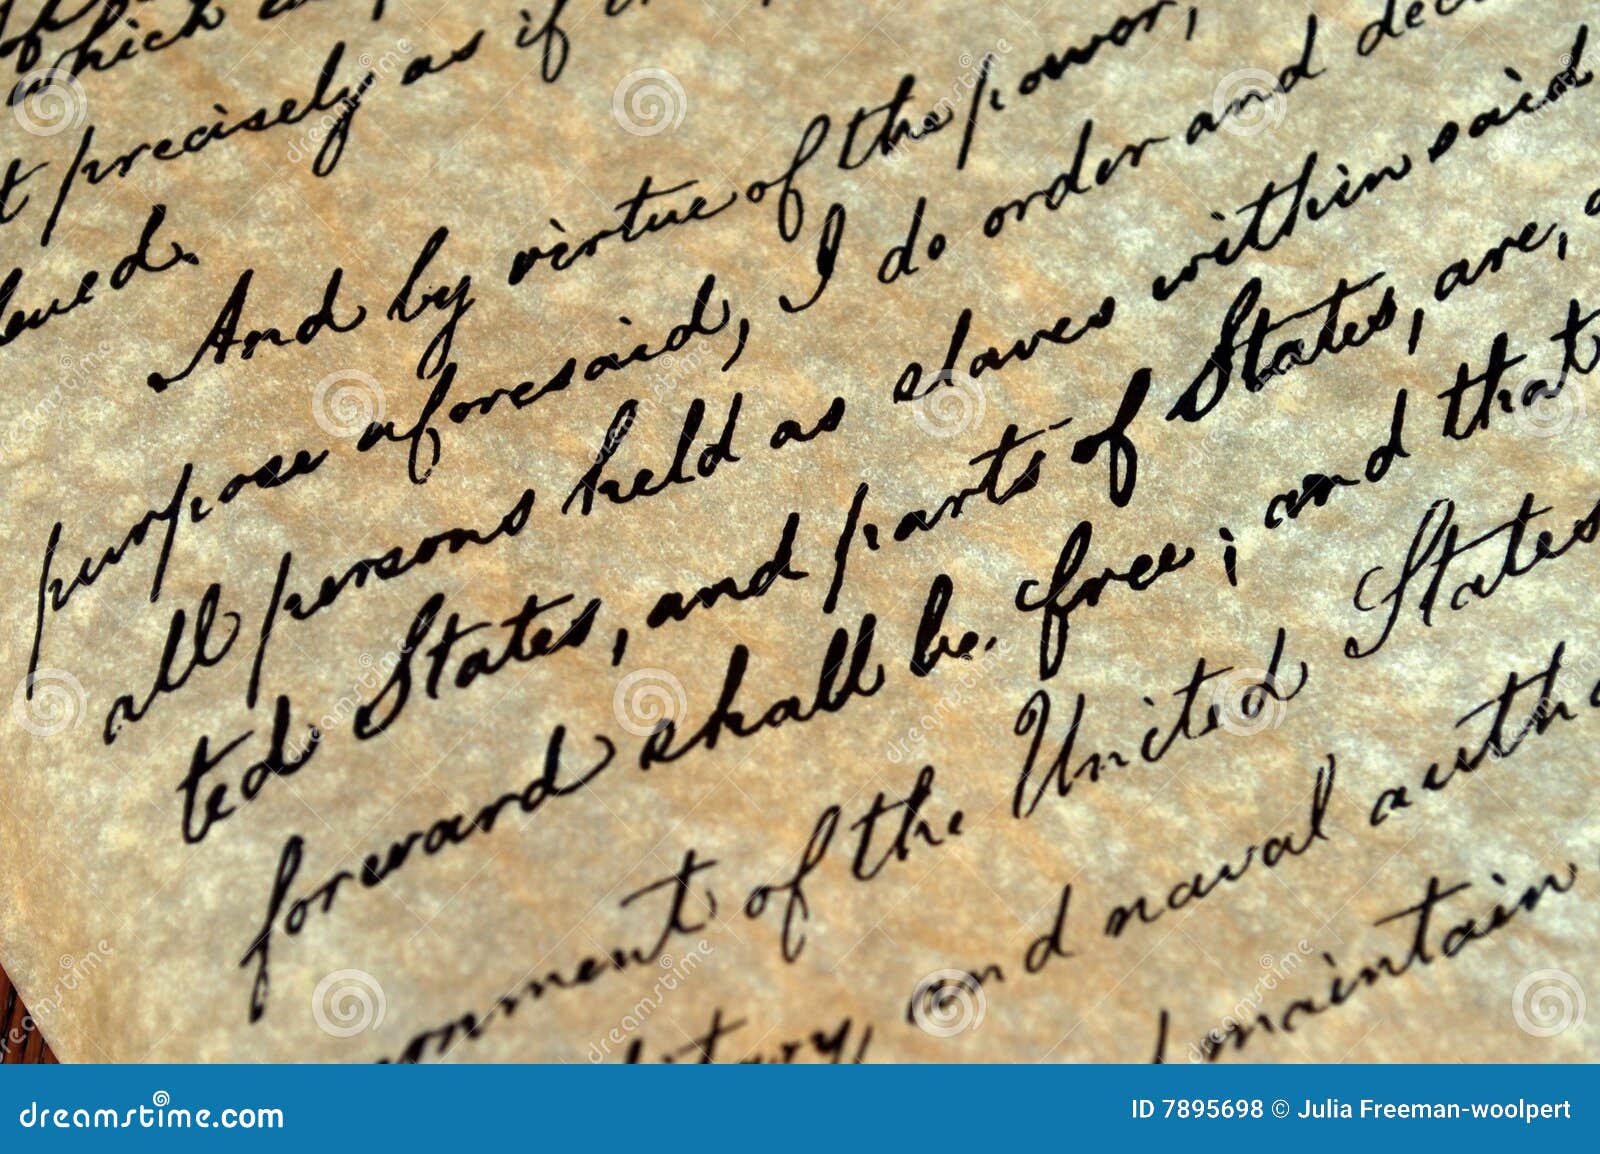 which
t precisely as if
sued.
And by virtue of the power,
purpose aforesaid, I do order and dec
all persons held as slaves within said
ted States, and parts of States, are,
forward shall be free; and that
ernment of the United States
and naval autho
maintain
dreamstime.com
ID 7895698 © Julia Freeman-woolpert